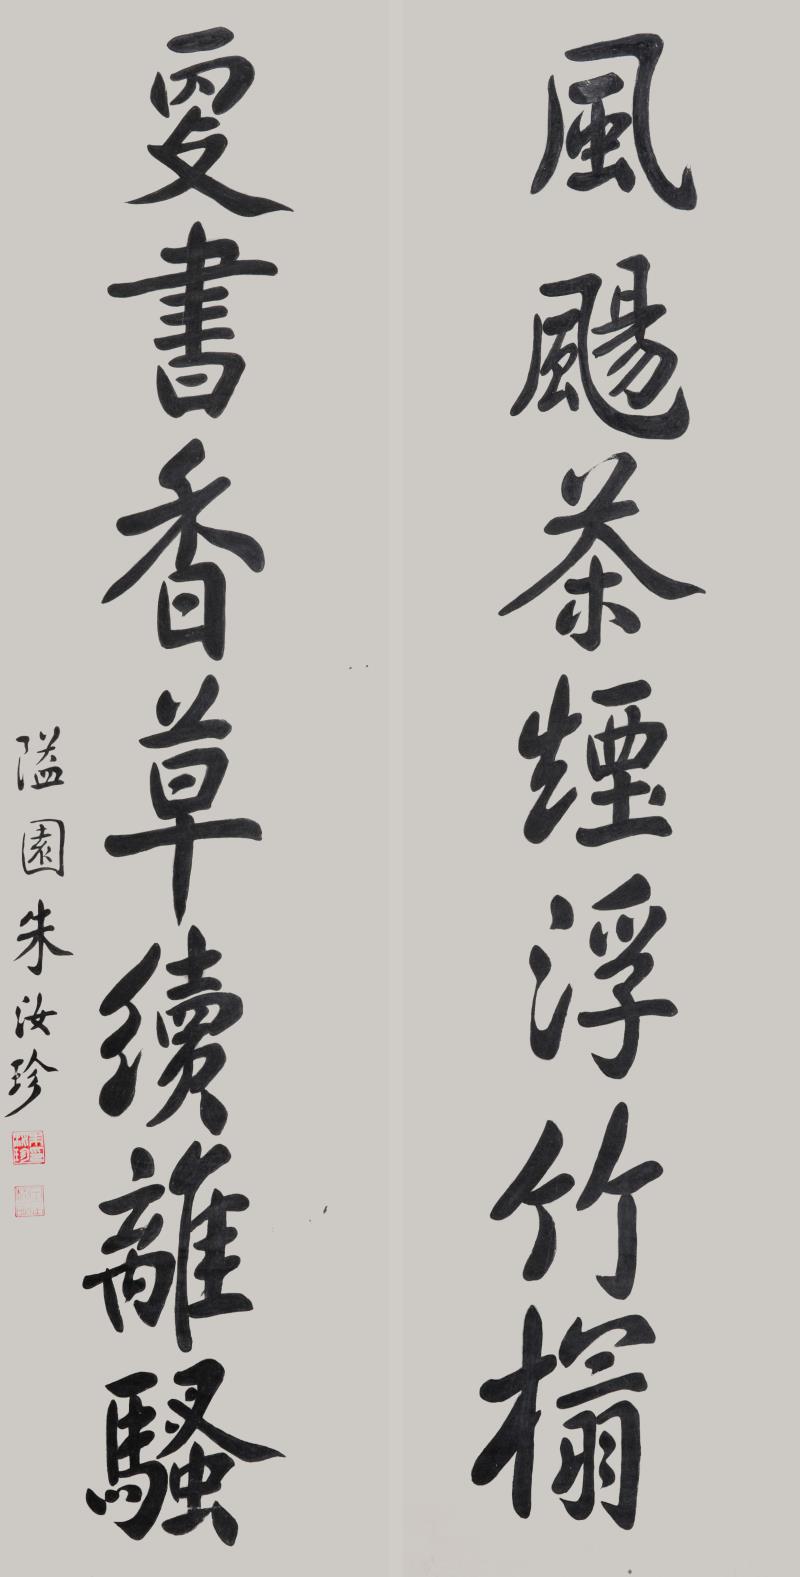 風颺茶煙浮竹榻
書香草續離騷
隘園朱汝珍